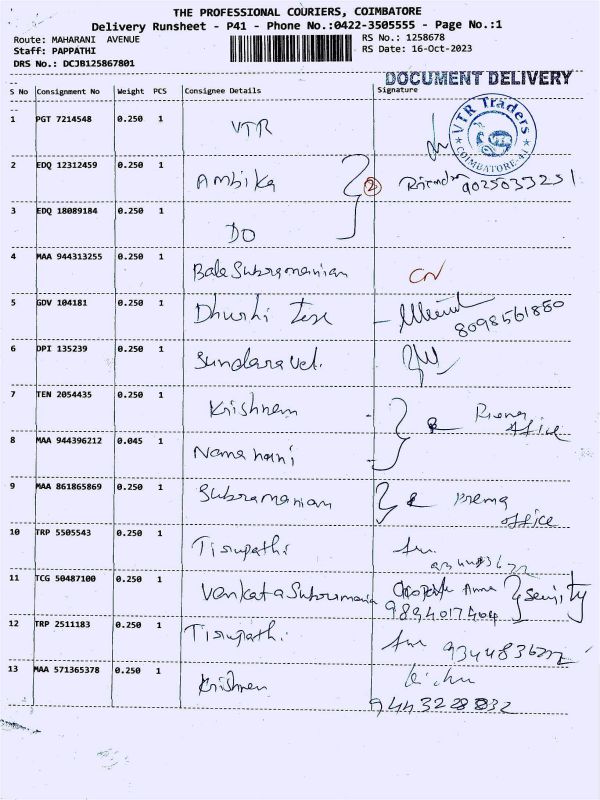 THE PROFESSIONAL COURIERS, COIMBATORE
Delivery Runsheet - P41 - Phone No.:0422-3505555 - Page No.:1
Route: MAHARANI AVENUE
RS No.: 1258678
Staff: PAPPATHI
RS Date: 16-Oct-2023
DRS No.: DCJB125867801
DOCUMENT DELIVERY
S No Consignment No Weight PCS Consignee Details Signature
1 PGT 7214548 0.250 1 VTR
VTR Traders
COIMBATORE-41
2 EDQ 12312459 0.250 1 Ambika 2 9025033251
3 EDQ 18089184 0.250 1 DO
4 MAA 944313255 0.250 1 Bala Subramanian CN
5 GDV 104181 0.250 1 Dhurhi Tex
8098561880
6 DPI 135239 0.250 1 Sundaravel.
7 TEN 2054435 0.250 1 Krishnan Prema office
8 MAA 944396212 0.045 1
9 MAA 861865869 0.250 1 Subramanian Prema office
10 TRP 5505543 0.250 1 Tirupathi
11 TCG 50487100 0.250 1 Venkata Subramania
12 TRP 2511183 0.250 1 Tirupathi.
13 MAA 571365378 0.250 1 Krishnan
9443228832